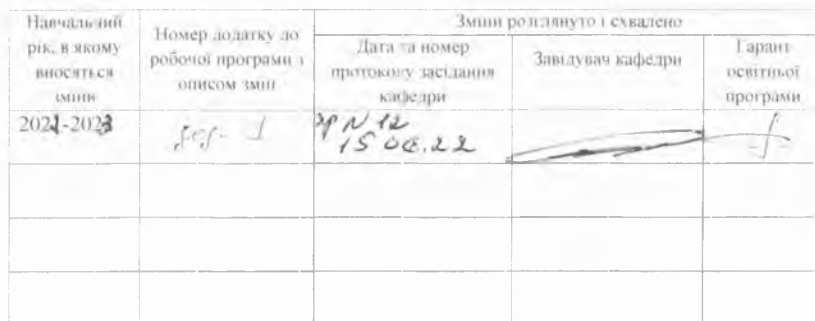 Навчальний рік, в якому вносяться зміни
Номер додатку до робочої програми з описом змін
Зміни розглянуто і схвалено
Дата та номер протоколу засідання кафедри
Завідувач кафедри
Гарант освітньої програми
2022-2023
1
N 12
15 06.22